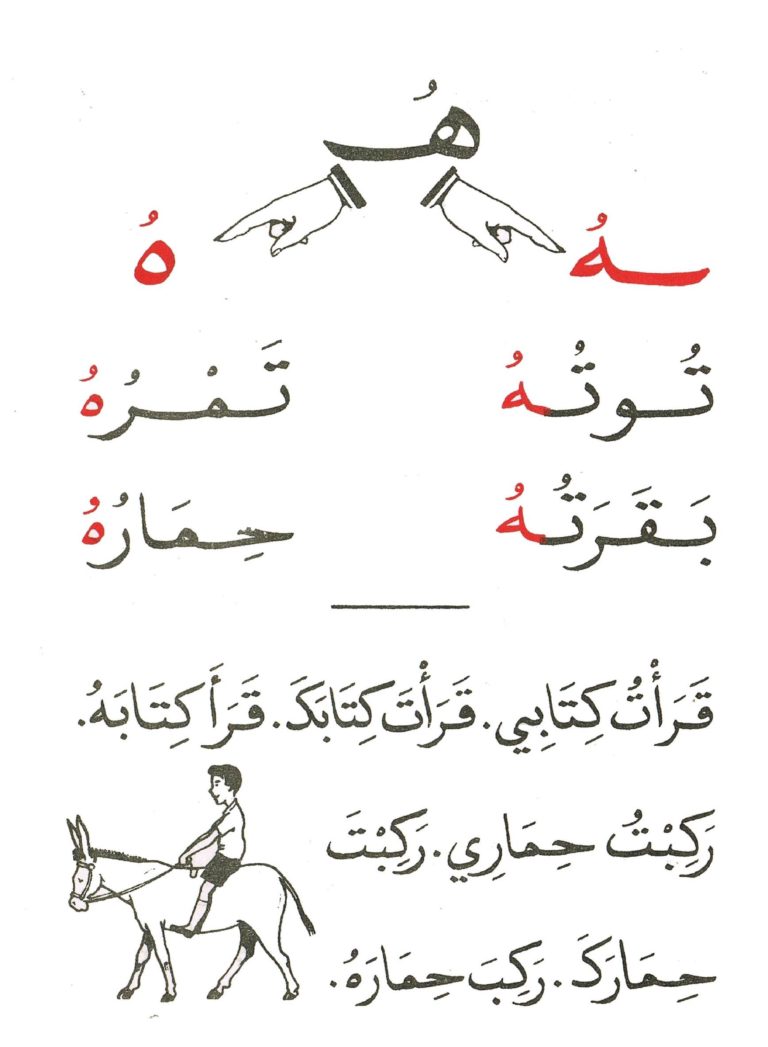 هُـ
ـهُ هُ
تُوتُهُ تَمْرُهُ
بَقَرَتُهُ حِمَارُهُ
قَرَأْتُ كِتَابِي. قَرَأْتَ كِتَابَكَ. قَرَأَ كِتَابَهُ.
رَكِبْتُ حِمَارِي. رَكِبْتَ
حِمَارَكَ. رَكِبَ حِمَارَهُ.